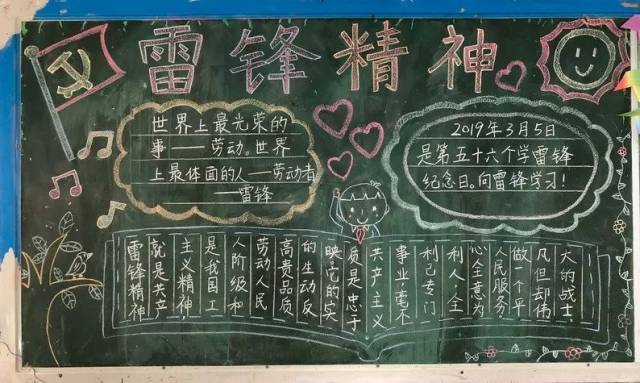 雷锋精神
世界上最光荣的
事——劳动。世界
上最体面的人——劳动者
——雷锋
2019年3月5日
是第五十六个学雷锋
纪念日。向雷锋学习!
雷锋精神
就是共产
主义精神,
是我国工
人阶级和
劳动人民
高贵品质
的生动反
映它的实
质是忠于
共产主义
事业,毫不
利己专门
利人,全
心全意为
人民服务,
做一个平
凡但却伟
大的战士